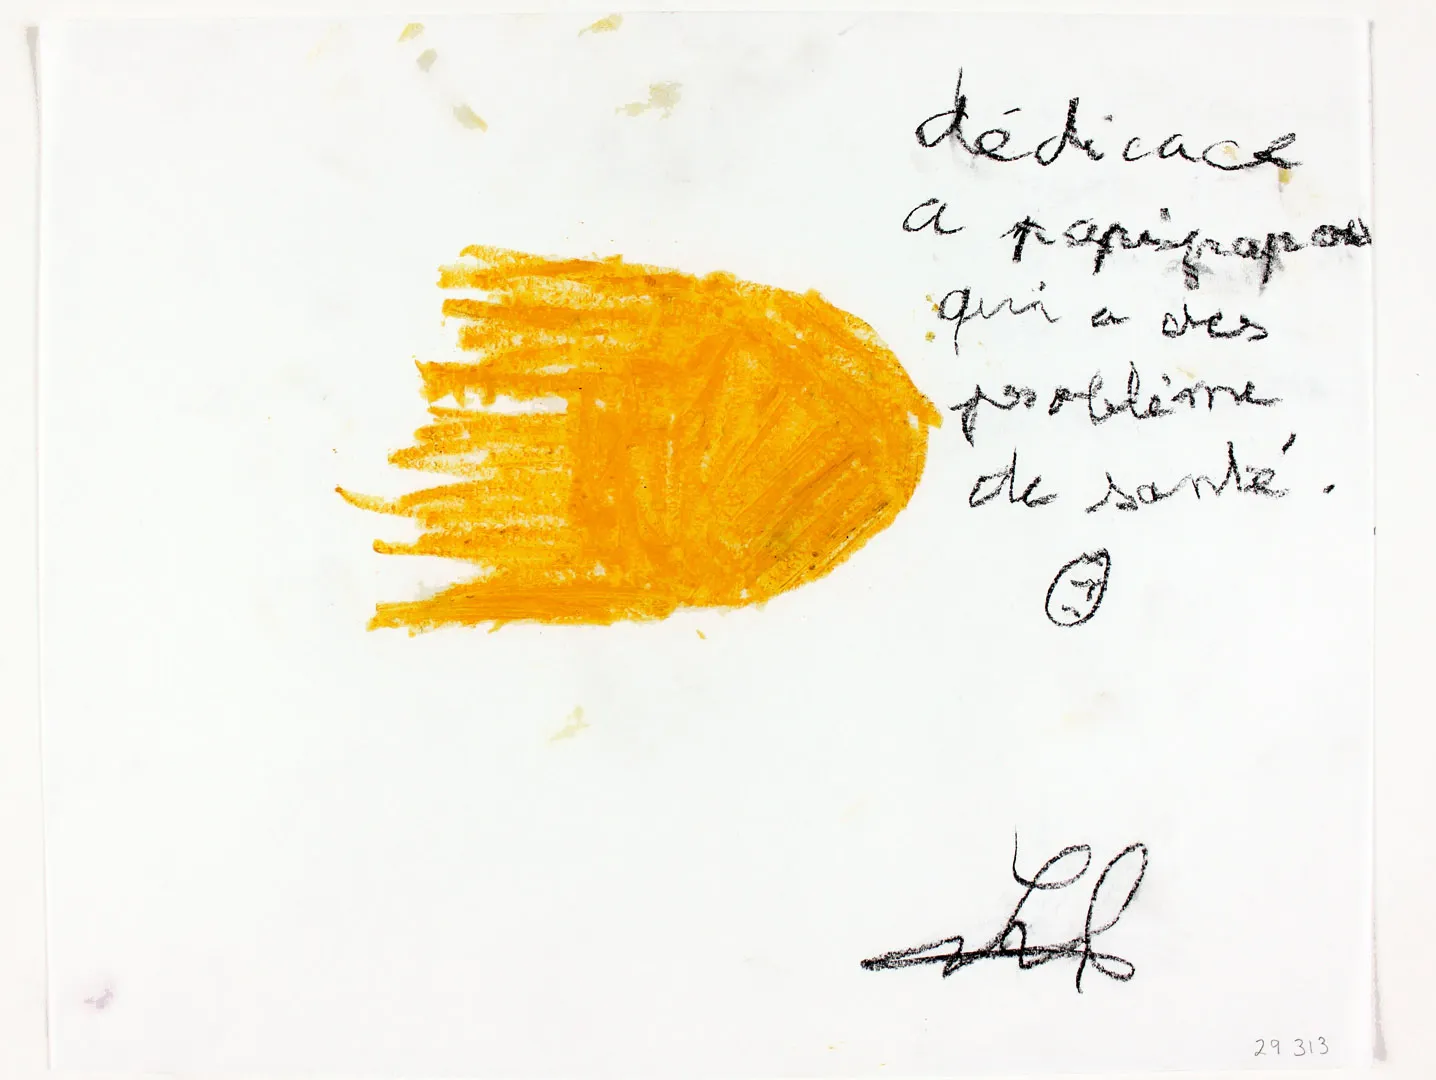 dédicace
a papigrapou
qui a des
problème
de santé.
29 313